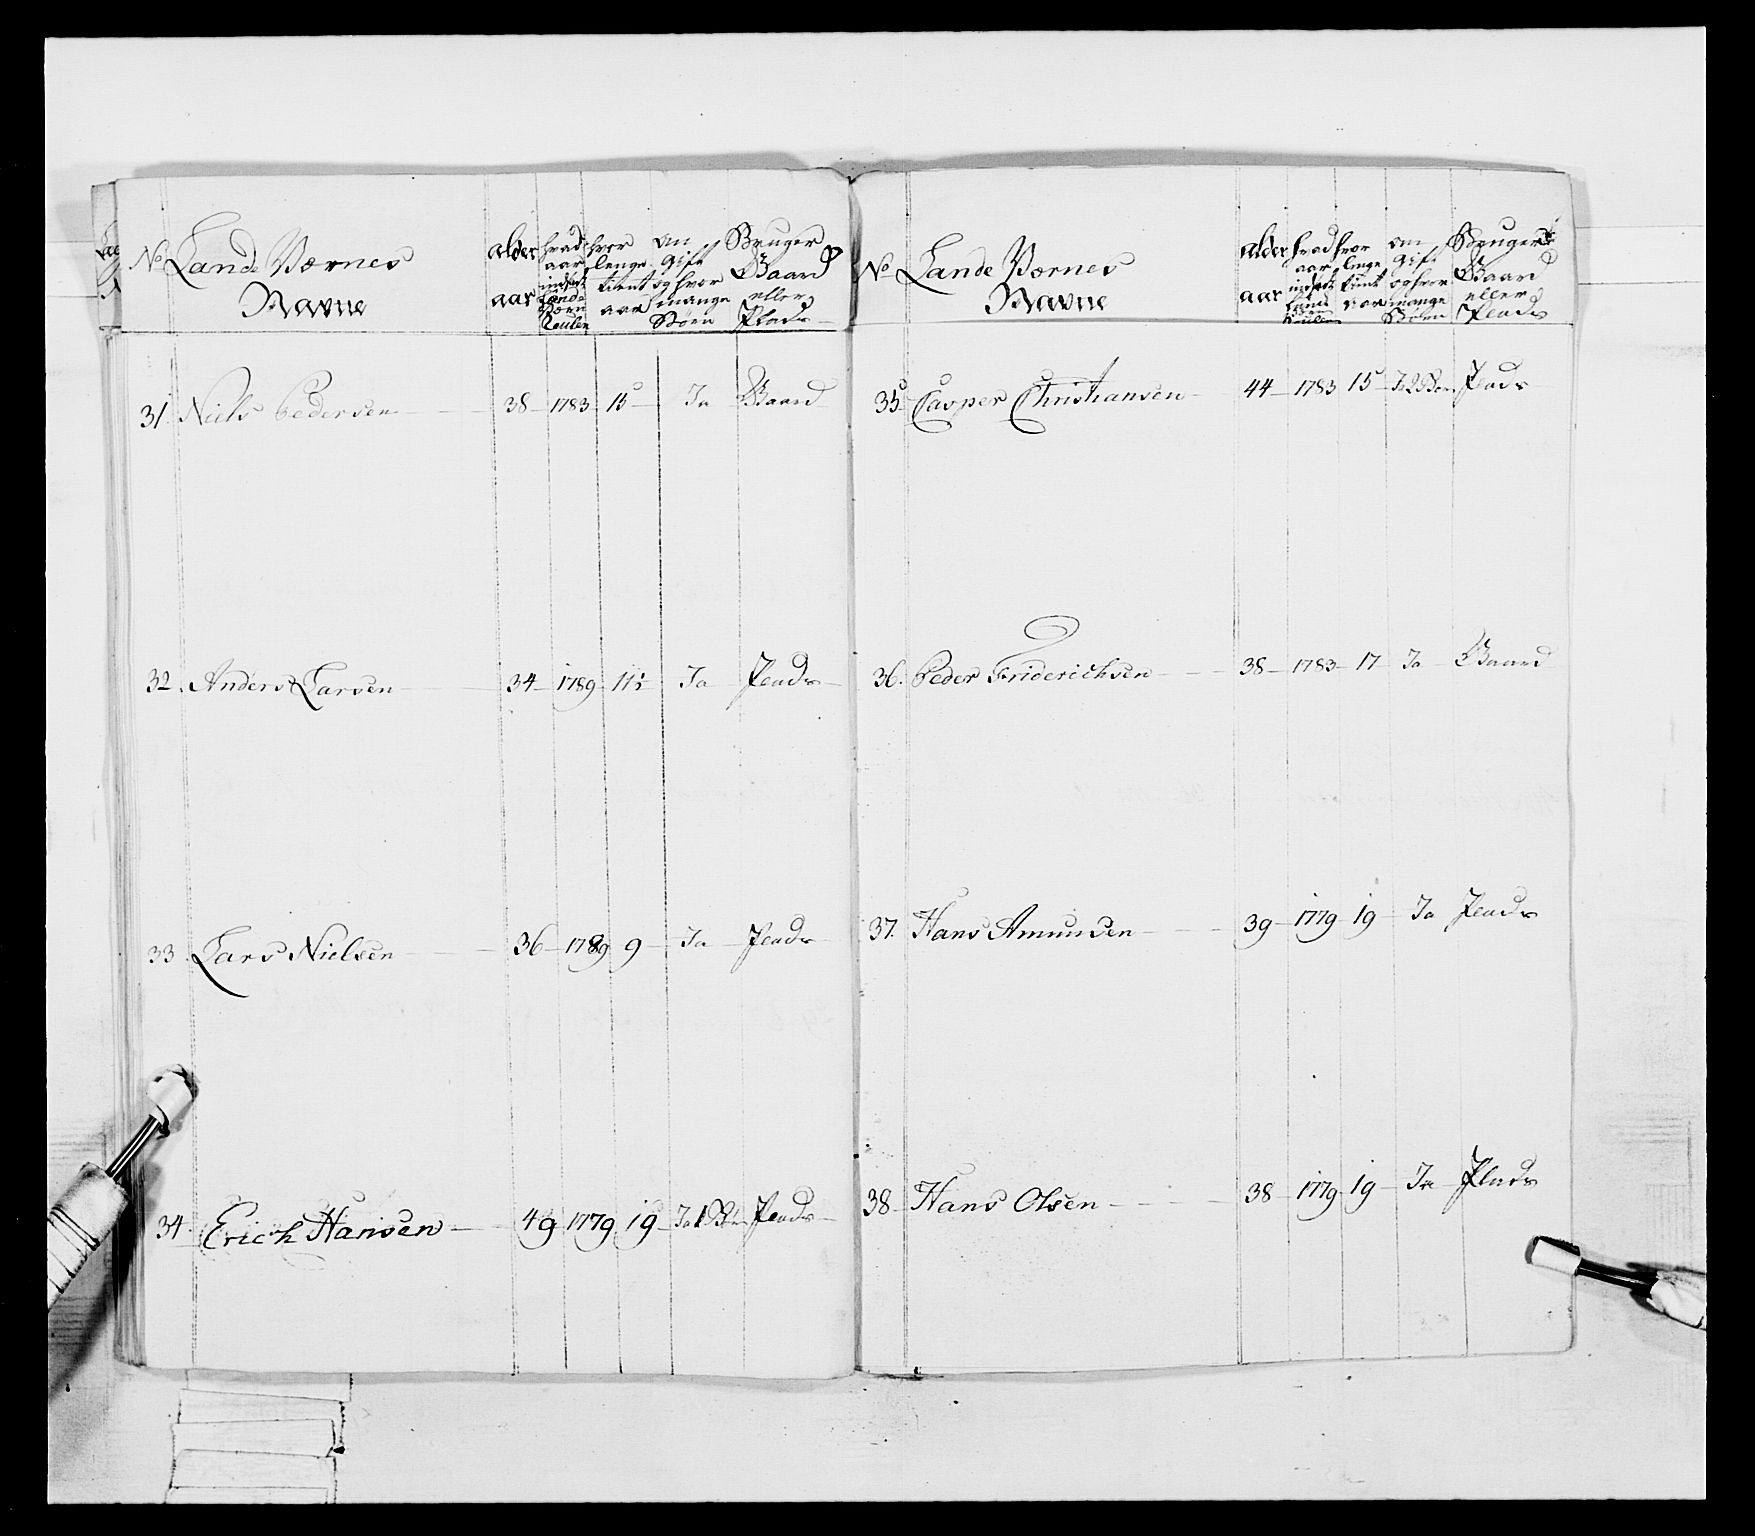 No Lande Værnes Navne alder aar hvad aar indsat Lande Værn Roulen hvor lenge tient aar om Gift og hvor mange Børn Bruger Gaard eller Plads
31 Niels Pedersen 38 1783 15 Ja Gaard
32. Anders Larsen 34 1789 11½ Ja Plads
33. Lars Nielsen 36 1789 9 Ja Plads
34. Erich Hansen 49 1779 19 Ja 1 Bør Plads
No Lande Værnes Navne alder aar hvad aar indsat Land Roulen hvor lenge tient aar om Gift og hvor mange Børen Bruger Gaard eller Plads
35. Casper Christiansen 44 1783 15 Ja 2 Bør Plads
36. Peder Friderichsen 38 1783 17 Ja Gaard
37. Hans Amundsen 39 1779 19 Ja Plads
38 Hans Olsen 38 1779 19 Ja Plads